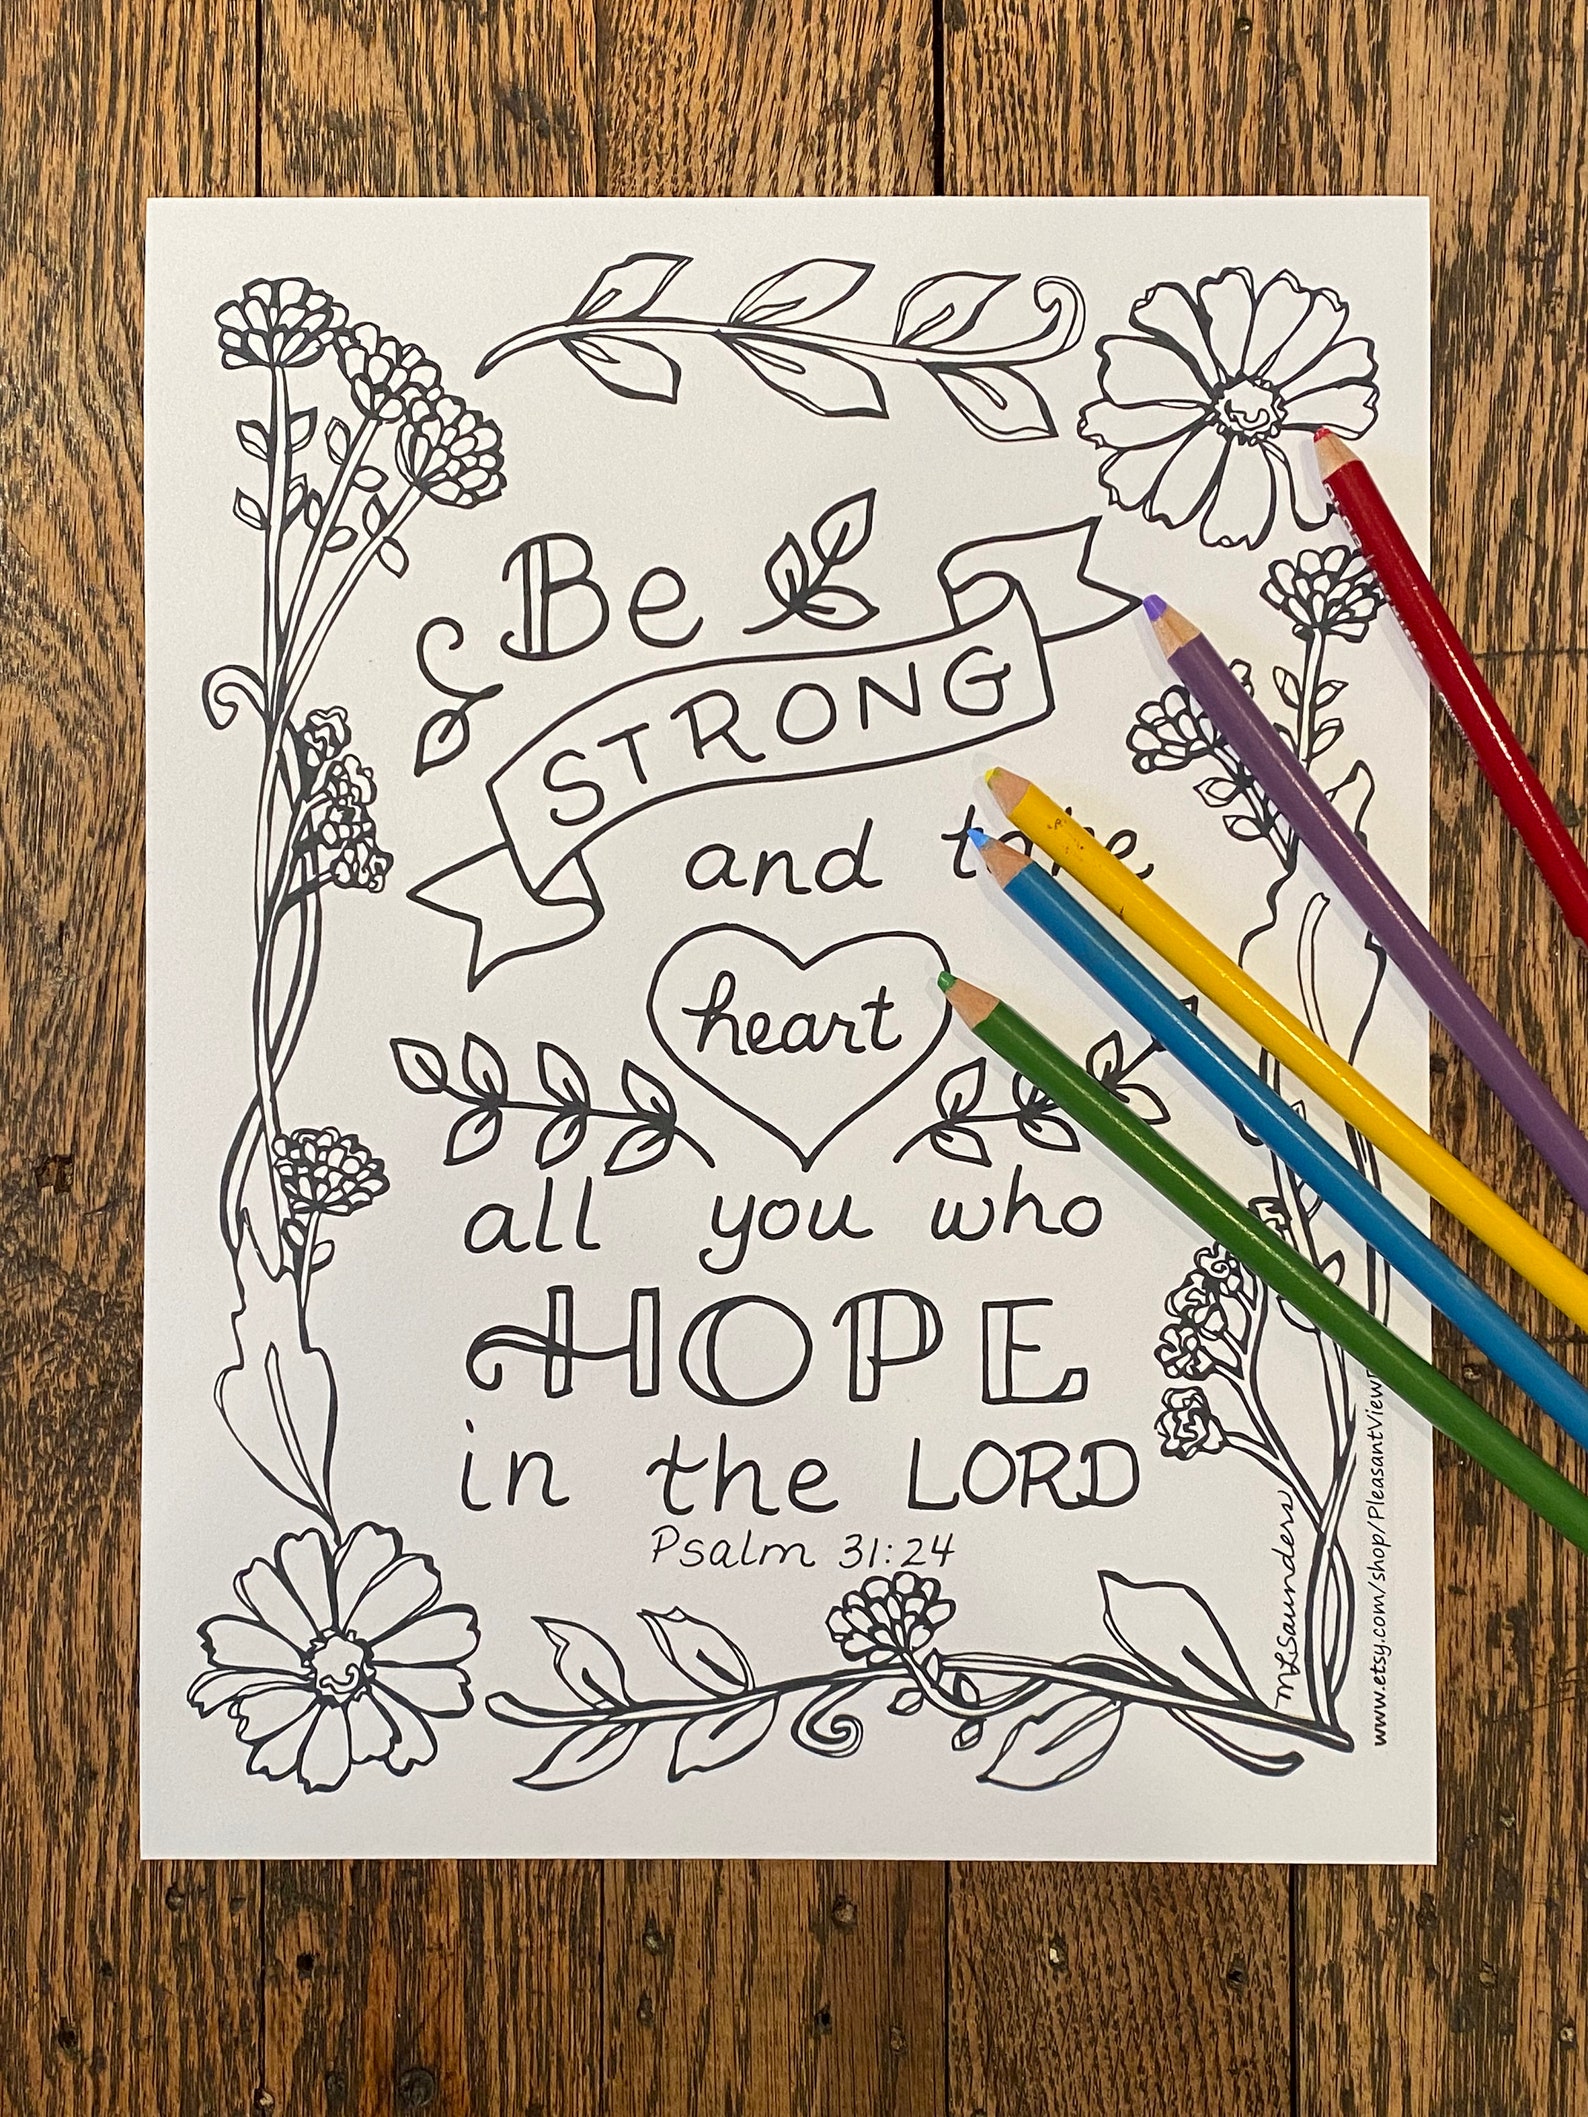 Be
STRONG
and take
heart
all you who
HOPE
in the LORD
Psalm 31:24
MLSaunders
www.etsy.com/shop/PleasantView